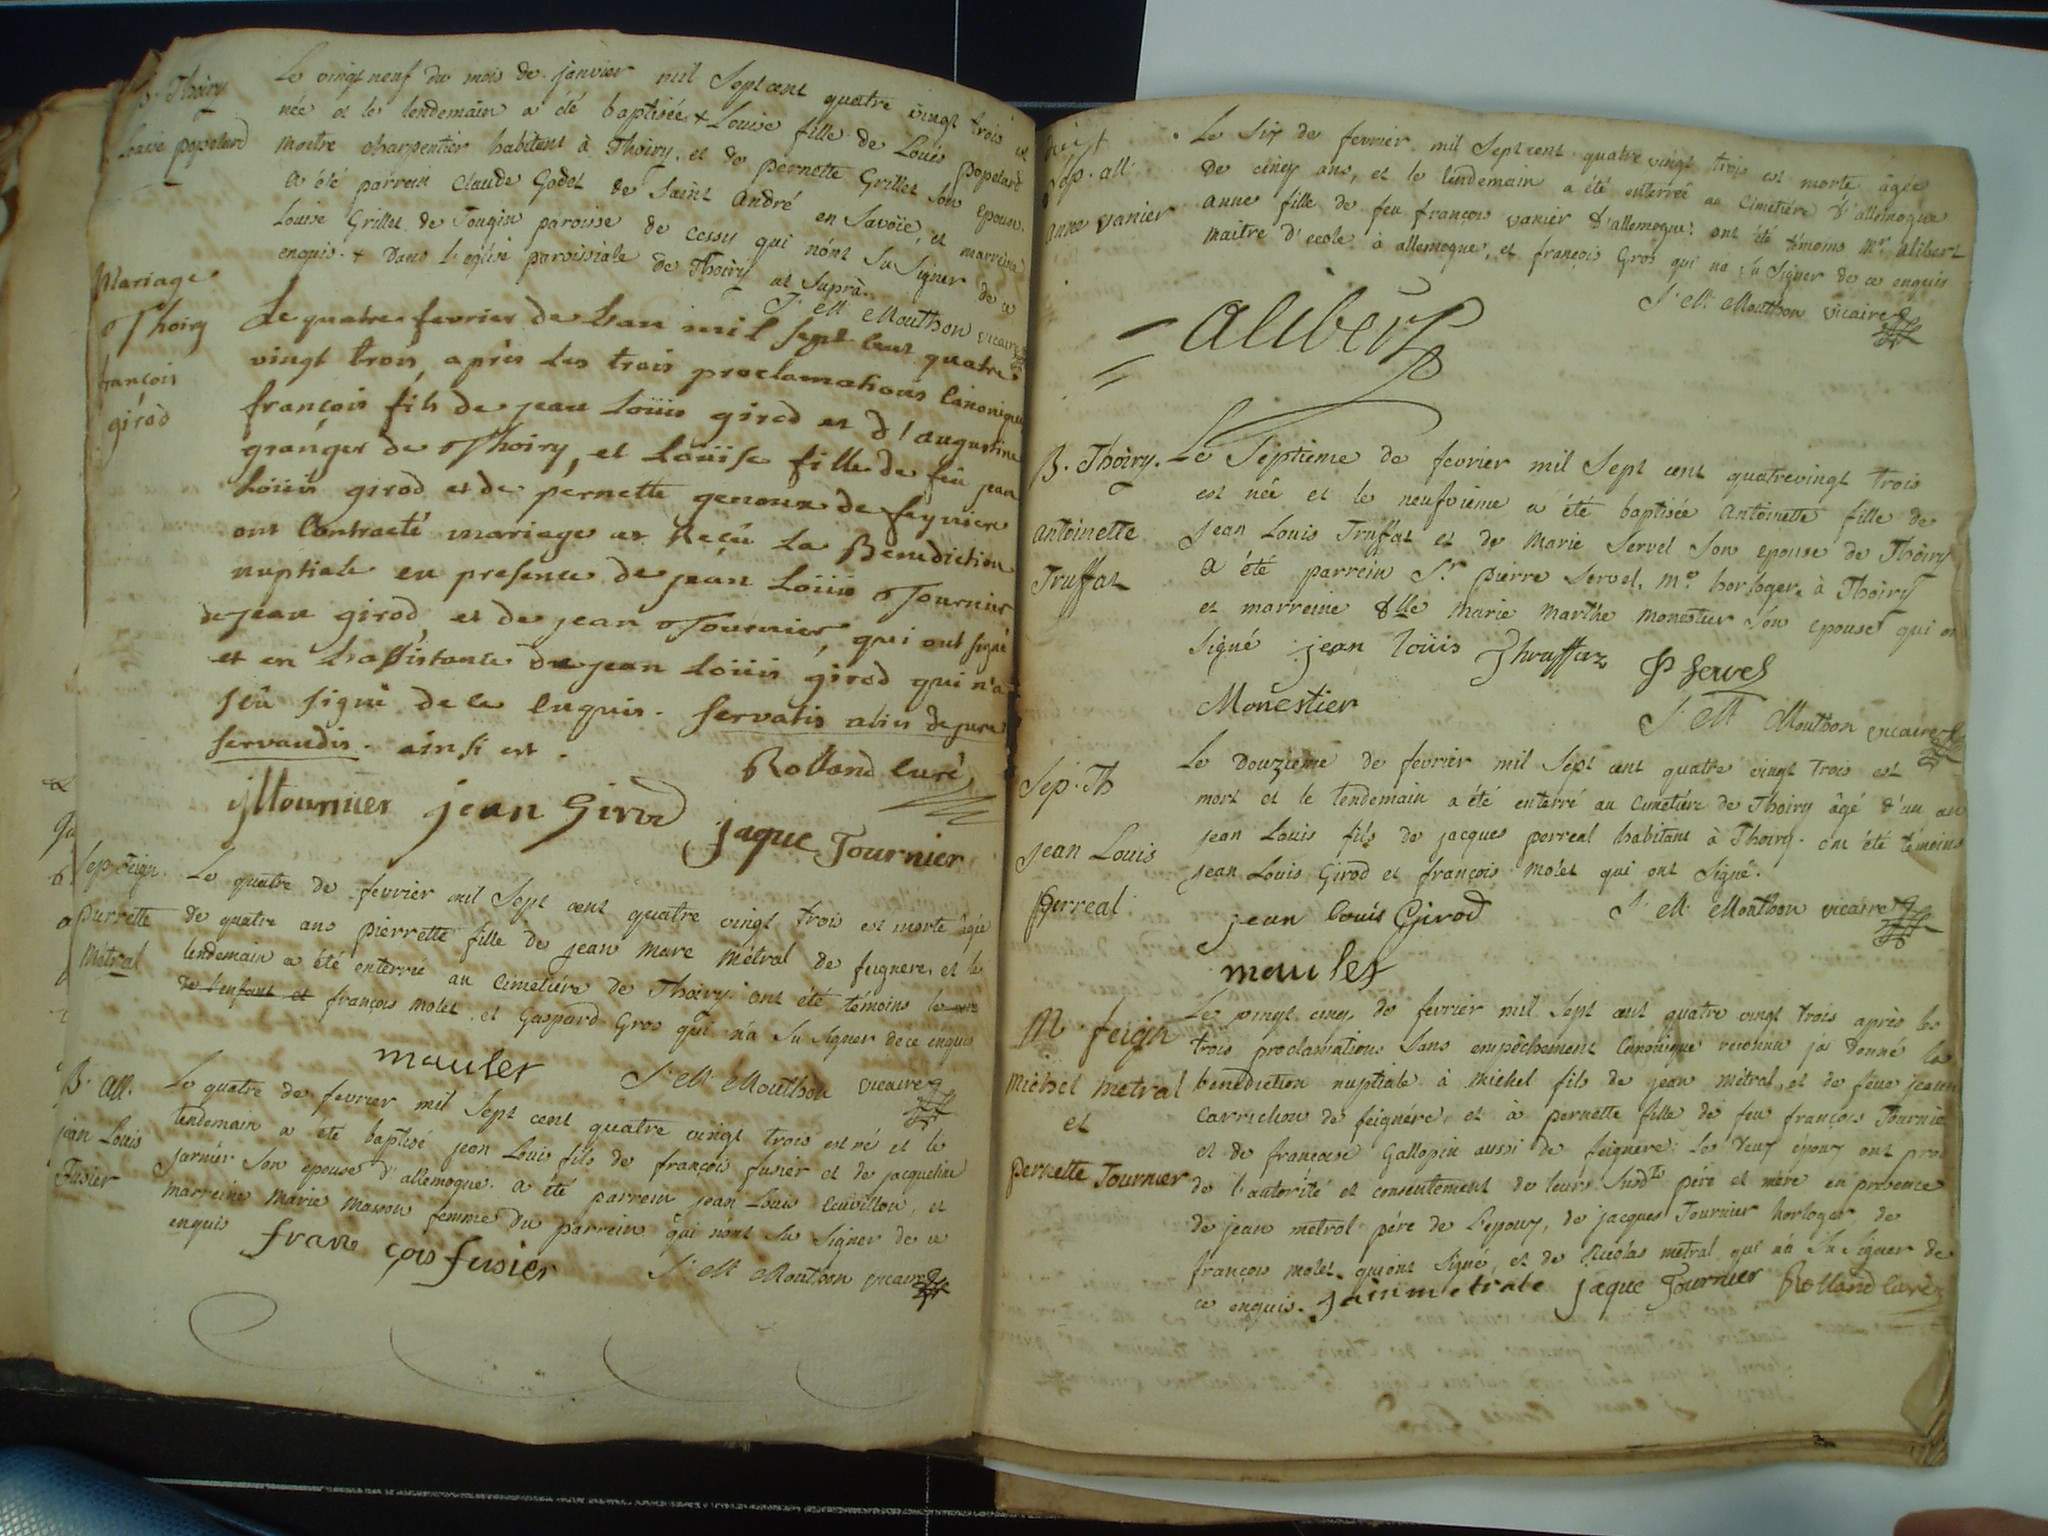 B. Thoiry
Louise popelard
Le vingt neuf du mois de janvier mil Sept cent quatre vingt trois est
née et le lendemain a été baptisée + Louise fille de Louis popelard
maitre charpentier habitant à Thoiry, et de pernette Grillet Son epouse.
a été parrein Claude Godet de Saint André en Savoïe, et marreine
Louise Grillet de Tougin paroisse de cessy qui n'ont Su Signer de ce
enquis. + Dans l'eglise paroissiale de Thoiry ut Suprà.
J. M. Mouthon vicaire
Mariage
Thoiry
françois
girod
Le quatre fevrier de lan mil sept cent quatre
vingt trois, après les trois proclamations Canoniques
françois fils de jean Loüis girod et d'augustine
granger de Thoiry, et Loüise fille de feu jean
Loüis girod et de pernette genoux de feynier
ont Contracté mariage et Reçu la Benediction
nuptiale en presence de jean Loüis Tournier
de jean girod, et de jean Tournier, qui ont signé
et en l'assistance de jean Loüis girod qui n'a
sçû signé de ce enquis. servatis aliis de jure
servandis. ainsi est.
Rolland Curé
jltournier jean Girod
jaque Tournier
Sep. feign.
pierrette
Métral
Le quatre de fevrier mil Sept cent quatre vingt trois est morte âgée
de quatre ans pierrette fille de jean Marc Métral de feignere, et le
lendemain a été enterrée au Cimetiére de Thoiry. ont été témoins le
de l'enfant et françois molet, et Gaspard Gros qui n'a Su Signer de ce enquis
maulet
J. M. Mouthon vicaire
B. All.
jean Louis
Fusier
Le quatre de fevrier mil Sept cent quatre vingt trois est né et le
lendemain a été baptisé jean Louis fils de françois fusier et de jacqueline
jarnier Son epouse d'allemogne. a été parrein jean Louis Cuvillon, et
marreine Marie Masson femme du parrein qui n'ont Su Signer de ce
enquis
fran çois fusier
J. M. Mouthon vicaire
Sep. all.
anne vanier
Le Six de fevrier mil Sept cent quatre vingt trois est morte âgée
de cinq ans, et le lendemain a été enterrée au Cimetiére d'allemogne
anne fille de feu françois vanier d'allemogne. ont été témoins Mr. alibert
maitre d'ecole à allemogne, et françois Gros qui n'a Su Signer de ce enquis
J. M. Mouthon vicaire
alibert
B. Thoiry.
antoinette
Truffat
Le Septieme de fevrier mil Sept cent quatrevingt trois
est née et le neufvieme a été baptisée antoinette fille de
jean Louis Truffat et de Marie Servel Son epouse de Thoiry
a été parrein Sr. pierre Servel, Me. horloger à Thoiry
et marreine dlle Marie Marthe Monestier Son epouse qui on
Signé jean loüis Thruffaz P Servel
Monestier
J. M. Mouthon vicaire
Sep. Th
jean Louis
perreal
Le Douzieme de fevrier mil Sept cent quatre vingt trois est
mort et le lendemain a été enterré au Cimetiére de Thoiry âgé d'un an
jean Louis fils de jacques perreal habitant à Thoiry. ont été témoins
jean Louis Girod et françois Molet qui ont Signé.
J. M. Mouthon vicaire
jean louis Girod
maulet
M. feign
Michel Metral
et
pernette Tournier
Le vingt cinq de fevrier mil Sept cent quatre vingt trois après les
trois proclamations Sans empêchement Canonique reconnu j'ai donné la
benediction nuptiale à Michel fils de jean Métral, et de feue jeanne
Carrichon de feignére, et à pernette fille de feu françois Tournier
et de francoise Gallopin aussi de feignere. Les deux époux ont pro
de l'autorité et consentement de leurs Susdts. pére et mére en presence
de jean metral pére de l'epoux, de jacques Tournier horloger, de
françois molet qui ont Signé, et de Nicolas metral qui n'a Su Signer de
ce enquis. jainmetrale jaque Tournier Rolland Curé